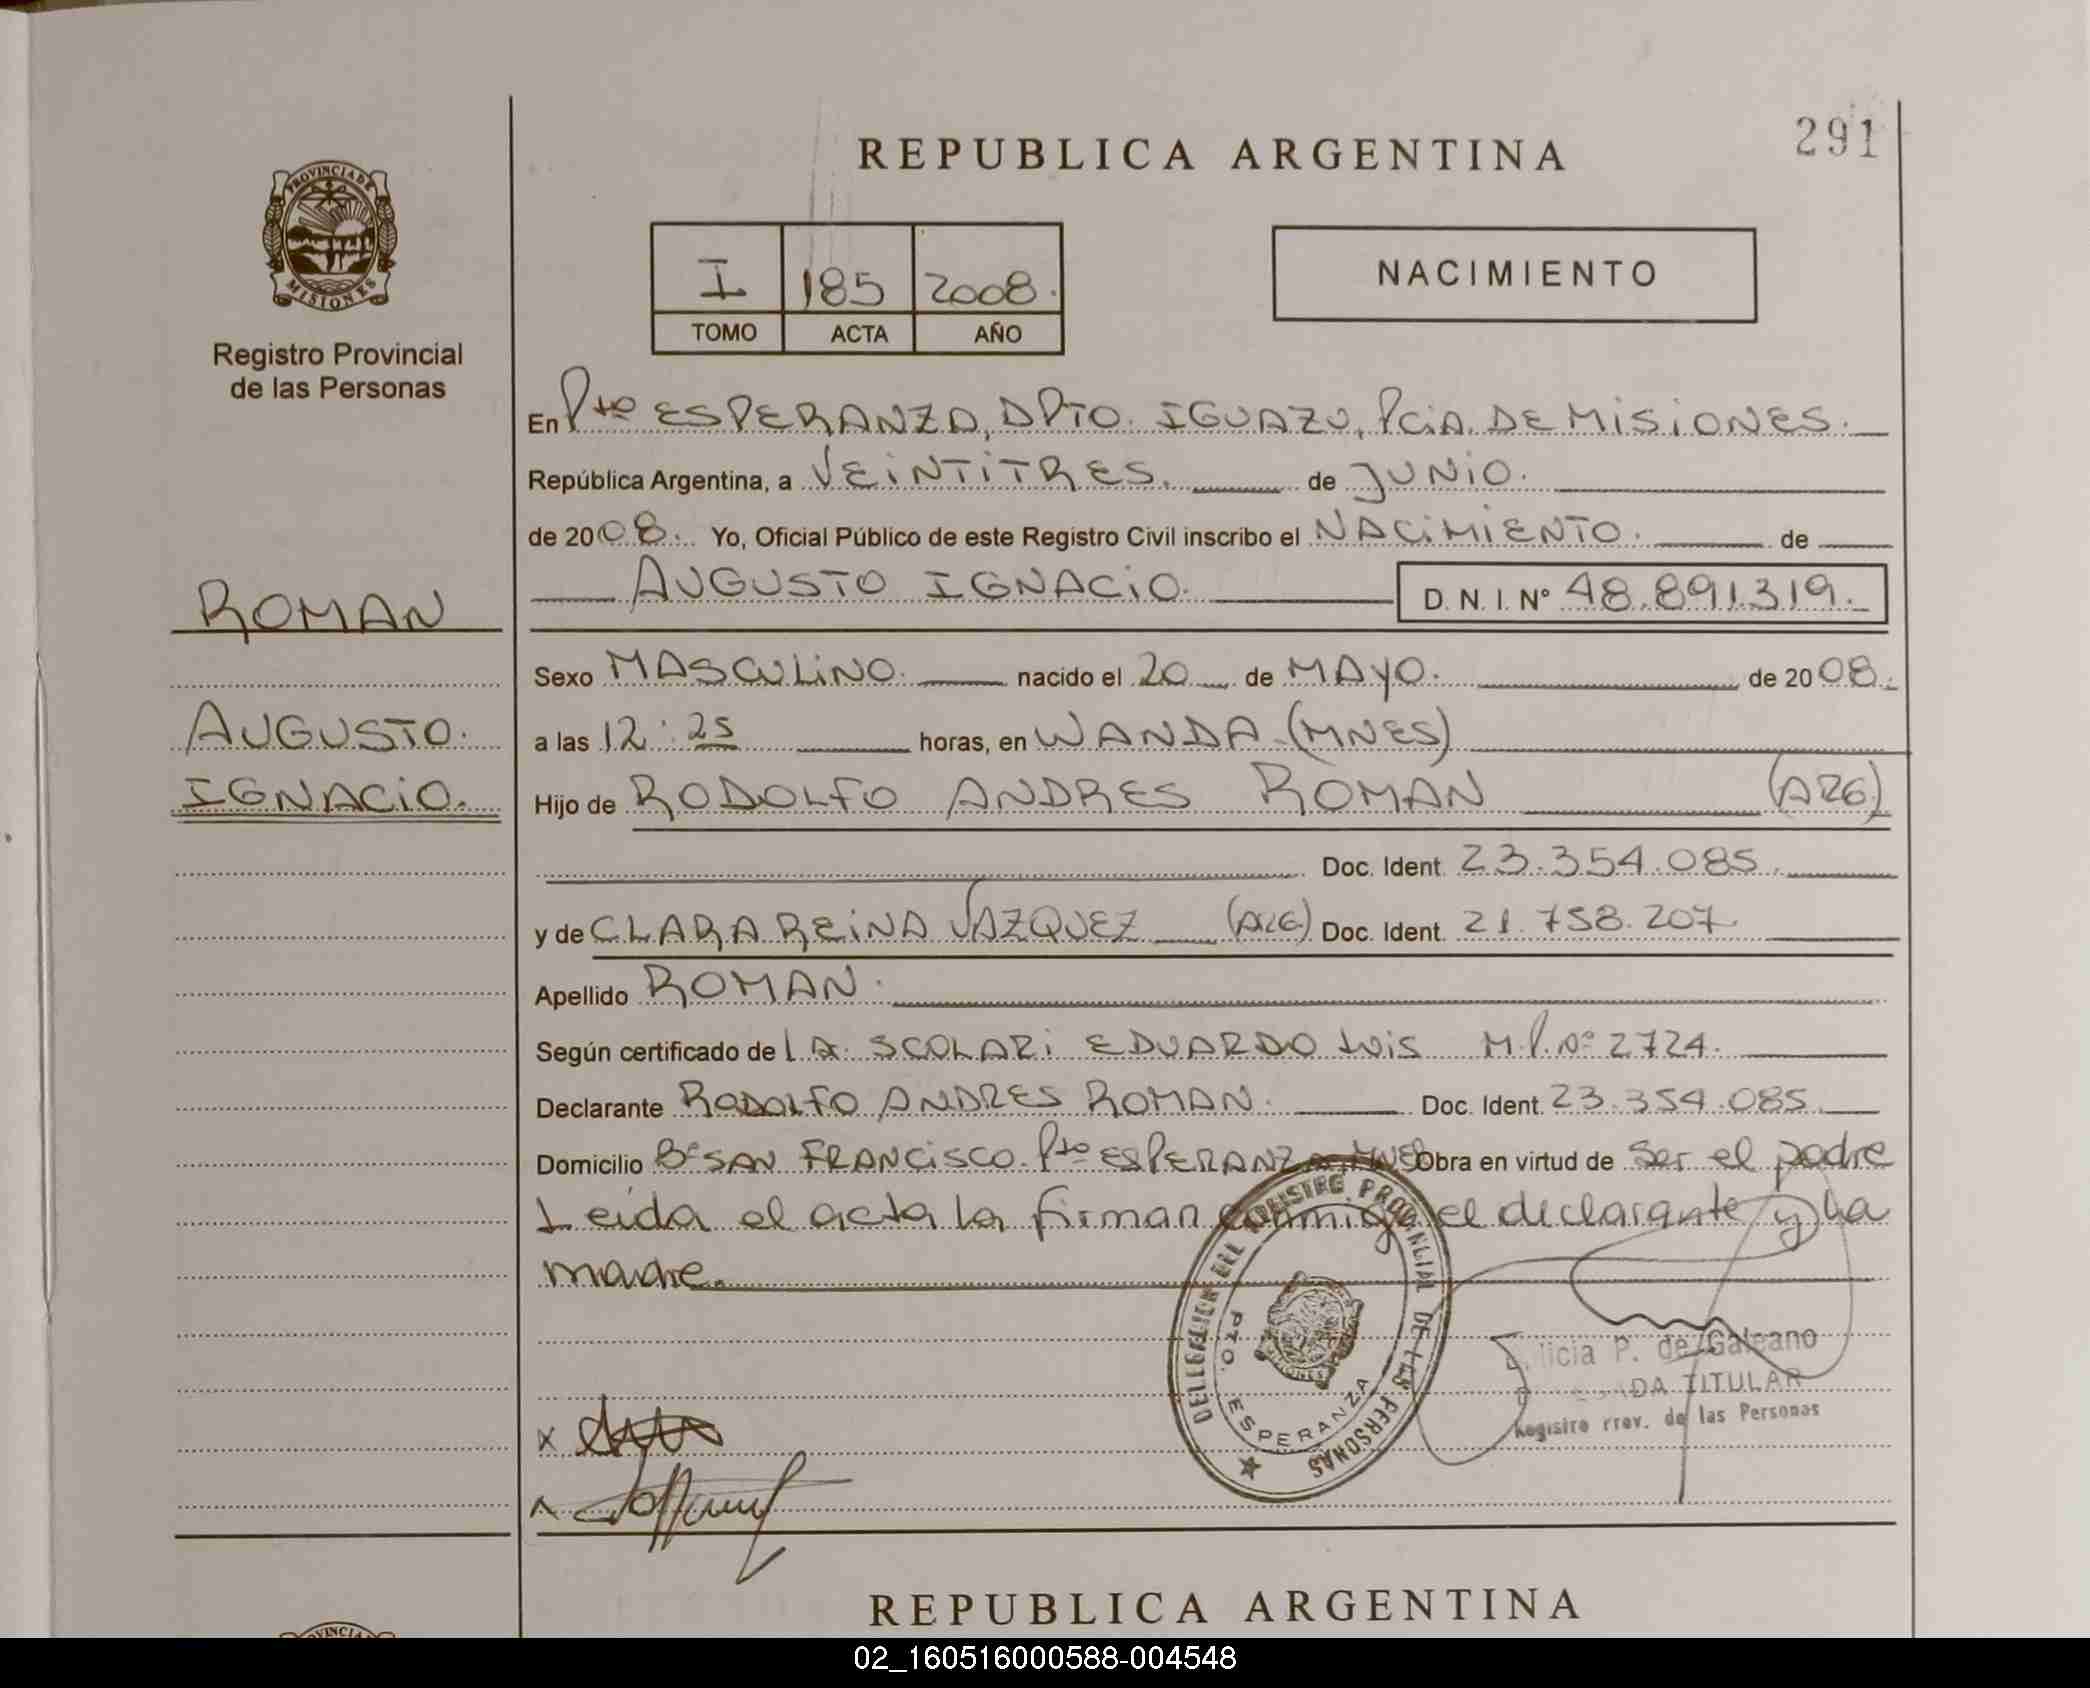 REPUBLICA ARGENTINA
291
PROVINCIA DE
MISIONES
Registro Provincial
de las Personas
I 185 2008.
TOMO ACTA AÑO
NACIMIENTO
En Pto ESPERANZA, DPTO. IGUAZU, PCiA. DE MISIONES.
República Argentina, a VEINTITRES. de JUNIO.
de 2008. Yo, Oficial Público de este Registro Civil inscribo el NACIMIENTO. de
AUGUSTO IGNACIO. D. N. I. N° 48.891.319.
ROMAN
AUGUSTO.
IGNACIO.
Sexo MASCULINO. nacido el 20 de MAYO. de 2008.
a las 12:25 horas, en WANDA (MNES)
Hijo de RODOLFO ANDRES ROMAN (ARG)
Doc. Ident. 23.354.085.
y de CLARA REINA VAZQUEZ (ARG) Doc. Ident. 21.758.207
Apellido ROMAN.
Según certificado de SCOLARI EDUARDO LUIS M.P. N° 2724.
Declarante RODOLFO ANDRES ROMAN. Doc. Ident. 23.354.085.
Domicilio B° SAN FRANCISCO. Pto ESPERANZA Obra en virtud de ser el padre
Leida el acta la firman conmigo el declarante y la
madre.
DELEGACION DEL REGISTRO PROVINCIAL DE LAS PERSONAS
PTO. ESPERANZA
P. de Galeano
TITULAR
Registro Prov. de las Personas
REPUBLICA ARGENTINA
02_160516000588-004548